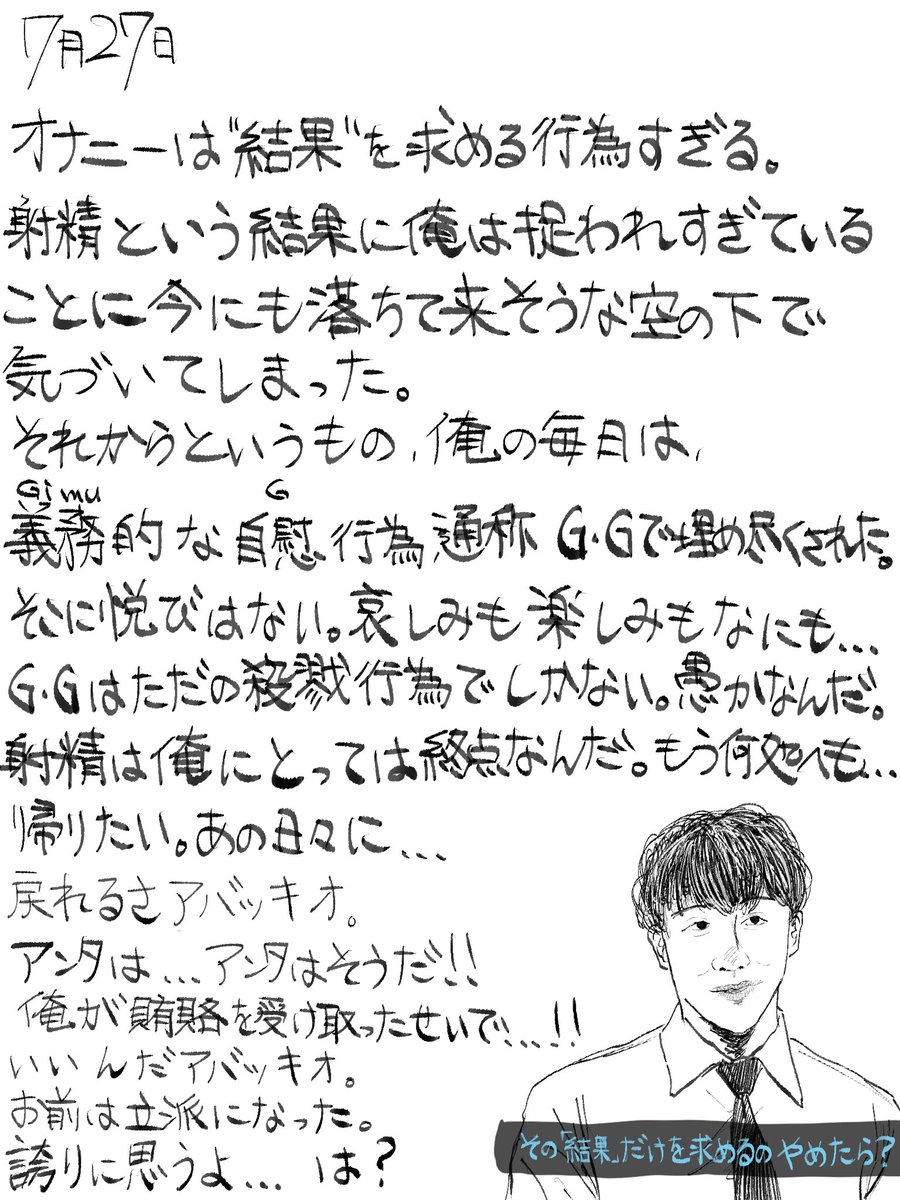 7月27日
オナニーは"結果"を求める行為すぎる。
射精という結果に俺は捉われすぎている
ことに今にも落ちて来そうな空の下で
気づいてしまった。
それからというもの、俺の毎日は、
Gimu G
義務的な自慰行為通称 G・Gで埋め尽くされた。
そこに悦びはない。哀しみも楽しみもなにも...
G・Gはただの殺戮行為でしかない。愚かなんだ。
射精は俺にとっては終点なんだ。もう何処へも...
帰りたい。あの日々に...
戻れるさアバッキオ。
アンタは...アンタはそうだ!!
俺が賄賂を受け取ったせいで...!!
いいんだアバッキオ。
お前は立派になった。
誇りに思うよ... は?
その「結果」だけを求めるのやめたら?